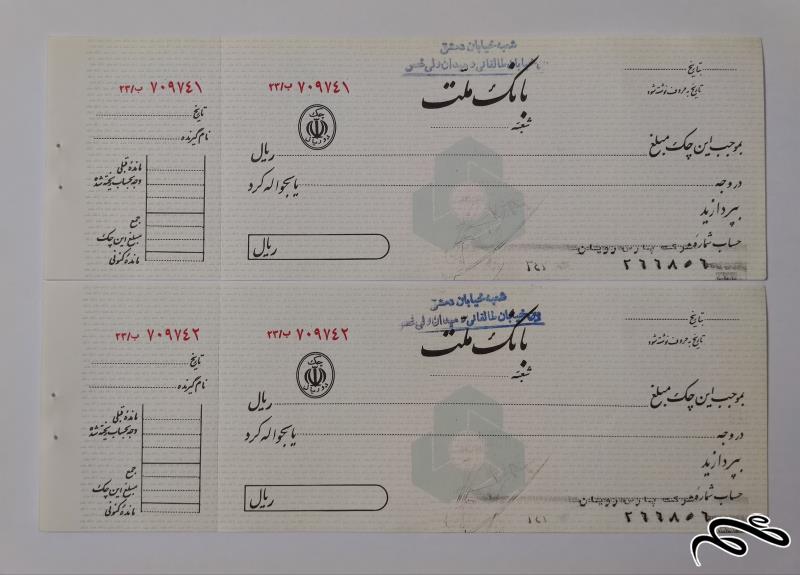 ۷۰۹۷۴۱ ب/۲۳
تاریخ
نام گیرنده
مانده قبلی
وجه بحساب ریخته شد
جمع
مبلغ این چک
مانده کنونی
شعبه خیابان دمشق
خیابان طالقانی و میدان ولی عصر
بانک ملت
شعبه
۷۰۹۷۴۱ ب/۲۳
چک
دو ریال
تاریخ
تاریخ به حروف نوشته شود
بموجب این چک مبلغ ریال
در وجه یا بحواله کرد
بپردازید
حساب شماره
ریال
۲۶۶۸۵۶
۲۴۱
۷۰۹۷۴۲ ب/۲۳
تاریخ
نام گیرنده
مانده قبلی
وجه بحساب ریخته شد
جمع
مبلغ این چک
مانده کنونی
شعبه خیابان دمشق
خیابان طالقانی و میدان ولی عصر
بانک ملت
شعبه
۷۰۹۷۴۲ ب/۲۳
چک
دو ریال
تاریخ
تاریخ به حروف نوشته شود
بموجب این چک مبلغ ریال
در وجه یا بحواله کرد
بپردازید
حساب شماره
ریال
۲۶۶۸۵۶
۲۴۱